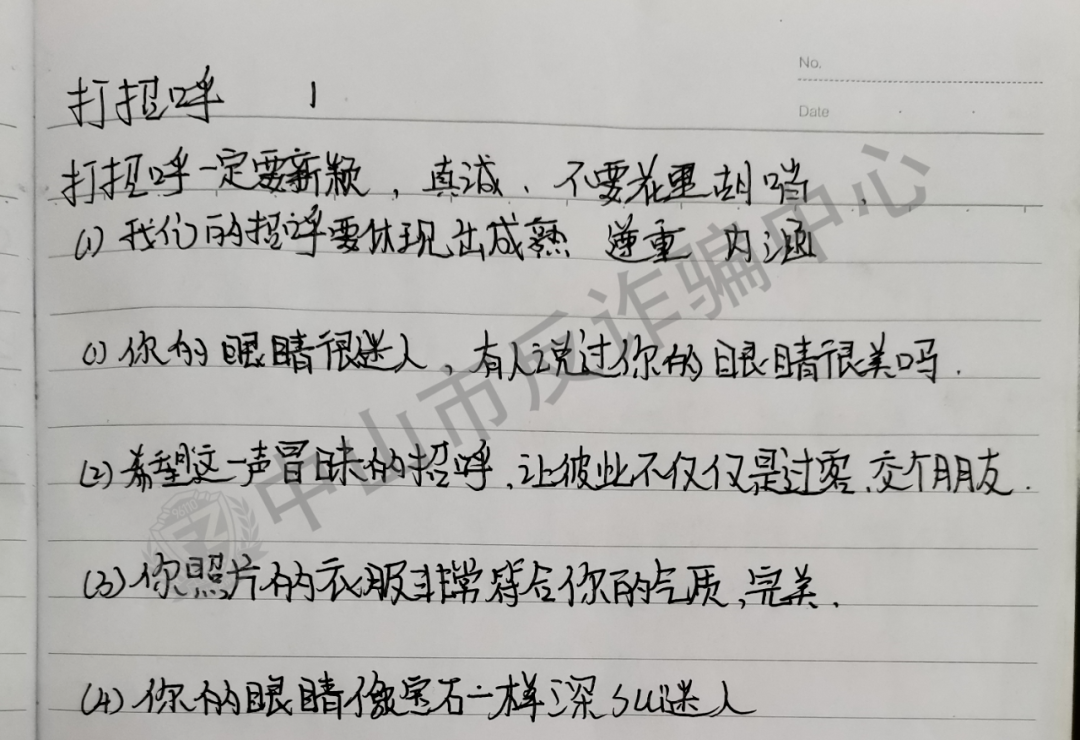 No.
Date
打招呼 1
打招呼一定要新颖，真诚、不要花里胡哨．
(1) 我们的招呼要体现出成熟 逆重 内涵
(1) 你的眼睛很迷人，有人说过你的眼睛很美吗．
(2) 希望这一声冒昧的招呼、让彼此不仅仅是过客、交个朋友．
(3) 你照片的衣服非常符合你的气质，完美．
(4) 你的眼睛像宝石一样深SUi迷人
中山市反诈骗中心